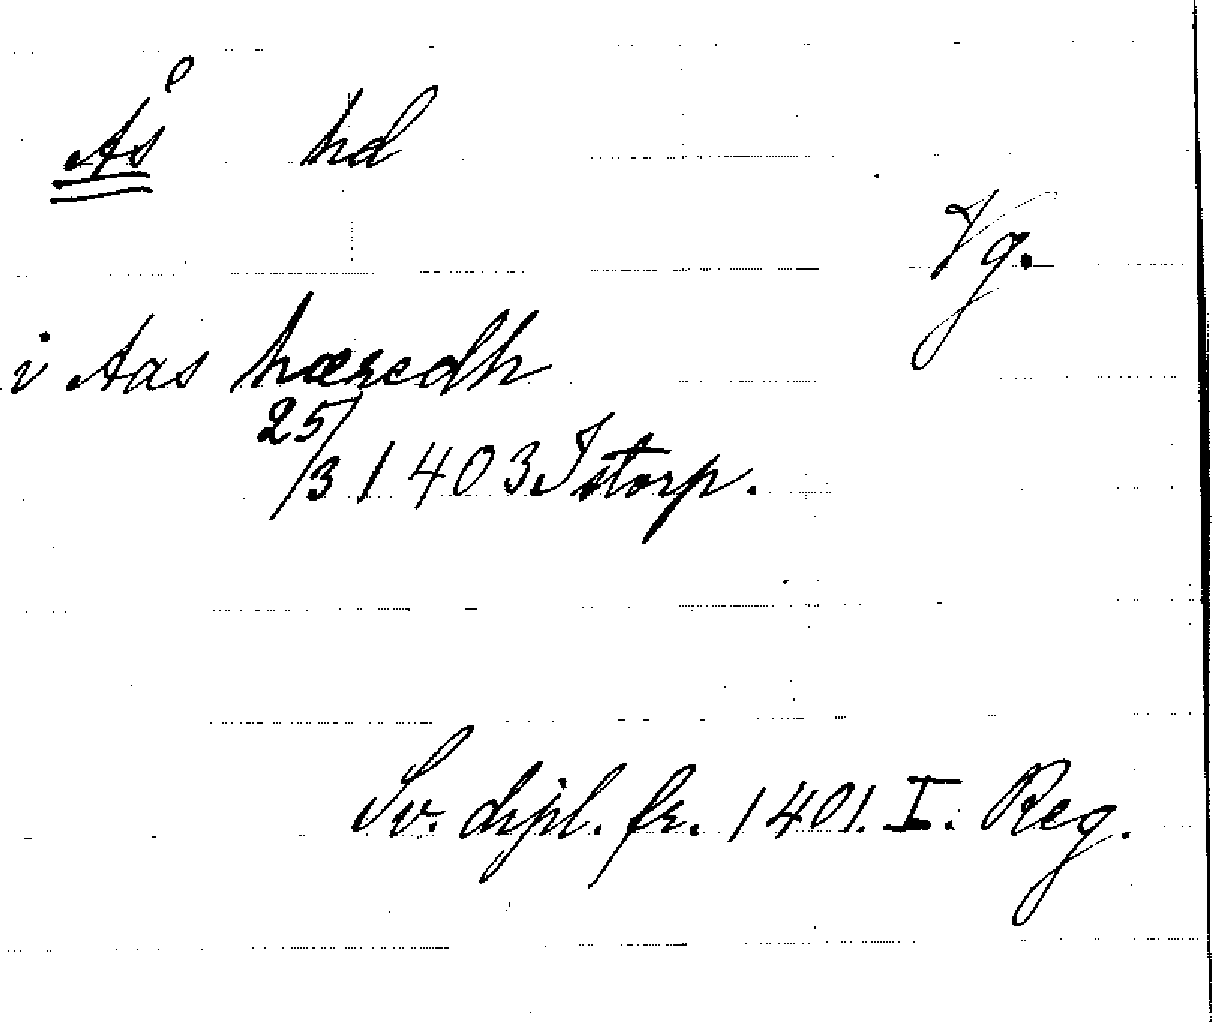 Ås hd
Vg.
i Aas hæredh
25/3 1403 Istorp.
Sv. dipl. fr. 1401. I. Reg.